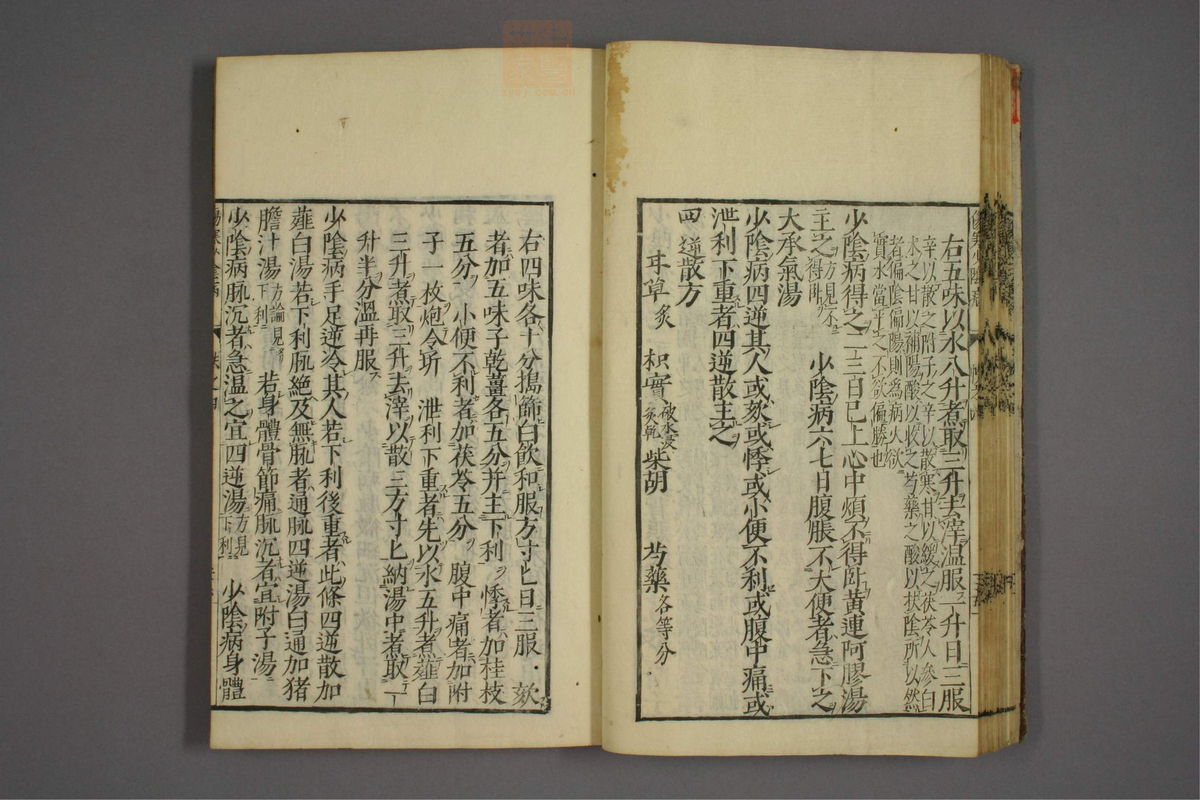 右五味以水八升煮取三升去滓温服一升日三服
辛以散之附子之辛以散寒甘以緩之茯苓人參白
水之甘以補陽酸以收之芍藥之酸以扶陰所以然
者偏陰偏陽則為病火欲
實水當平之不欲偏勝也
少陰病得之二三日已上心中煩不得卧黄連阿膠湯
主之方見不得卧 少陰病六七日腹脹不大便者急下之
大承氣湯
少陰病四逆其人或欬或悸或小便不利或腹中痛或
泄利下重者四逆散主之
四逆散方
甘草炙 枳實破水浸炙乾 柴胡 芍藥各等分
右四味各十分擣篩白飲和服方寸匕日三服 欬
者加五味子乾薑各五分并主下利 悸者加桂枝
五分 小便不利者加茯苓五分 腹中痛者加附
子一枚炮令坼 泄利下重者先以水五升煮薤白
三升煮取三升去滓以散三方寸匕納湯中煮取一
升半分溫再服
少陰病手足逆冷其人若下利後重者此條四逆散加
薤白湯若下利脉絶及無脉者通脉四逆湯白通加猪
膽汁湯方論見下利 若身體骨節痛脉沉者宜附子湯
少陰病脉沉者急温之宜四逆湯方見下利 少陰病身體